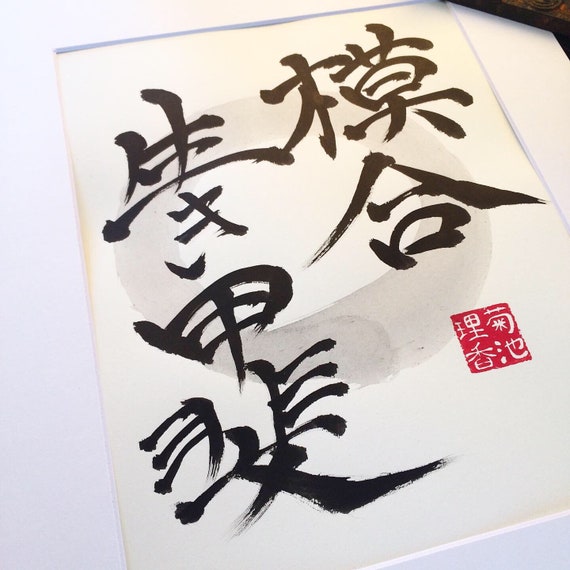 模合
生き甲斐
菊池
理香